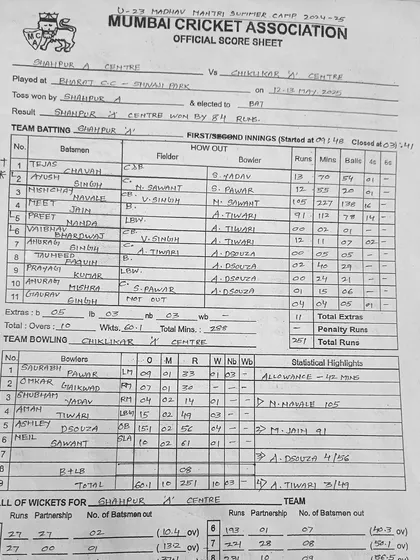 U-23 MADHAV MANTRI SUMMER CAMP 2024-25
MUMBAI CRICKET ASSOCIATION
OFFICIAL SCORE SHEET
SHAHPUR A CENTRE Vs CHIKLIKAR 'A' CENTRE
Played at BHARAT C.C - SHIVAJI PARK on 12-13 MAY 2025
Toss won by SHAHPUR A & elected to BAT
Result SHAHPUR 'A' CENTRE WON BY 84 RUNS.
TEAM BATTING SHAHPUR 'A' FIRST/SECOND INNINGS (Started at 09:48 Closed at 03:41
No. Batsmen HOW OUT Runs Mins Balls 4s 6s
Fielder Bowler
1 TEJAS CHAVAN C&B S.YADAV 13 70 54 01 -
2 AYUSH SINGH C. N. SAWANT S. PAWAR 12 55 20 01 -
3 NAVALE C. V. SINGH N. SAWANT 105 227 138 16 -
4 MEET JAIN B. A. TIWARI 91 112 78 14 -
5 PREET NANDA LBW. A. TIWARI 00 02 01 - -
6 VAIBHAV BHARDWAJ V. SINGH A. TIWARI 12 11 07 02 -
7 ANURAG SINGH C. A. TIWARI A. DSOUZA 00 05 05 - -
8 TAUHEED A. DSOUZA 02 40 29 - -
9 PRAYAG KUMAR LBW. A. DSOUZA 00 24 21 - -
10 ANURAG MISHRA C. S. PAWAR A. DSOUZA 01 15 06 - -
11 GAURAV SINGH NOT OUT 04 04 05 01 -
Extras : b 05 lb 03 nb 03 wb - 11 Total Extras
- Penalty Runs
Total : Overs : 10 Wkts. 60.1 Total Mins. : 288 251 Total Runs
TEAM BOWLING CHIKLIKAR 'A' CENTRE
No. Bowlers O M R W Nb Wb Statistical Highlights
1 SAURABH PAWAR LM 09 01 33 01 03 - ALLOWANCE - 42 MINS
2 OMKAR GAIKWAD RM 07 01 30 - - -
3 SHUBHAM YADAV RM 04 02 14 01 - - N. NAVALE 105
4 AMAN TIWARI LBG 15 02 49 03 - -
5 ASHLEY DSOUZA OB 151 02 56 04 - - 2) M. JAIN 91
6 NEIL SAWANT SLA 10 02 61 01 - -
7 3) A. DSOUZA 4/56
8 B+LB 08
9 TOTAL 60.1 10 251 10 03 - 4) A. TIWARI 3/49
ALL OF WICKETS FOR SHAHPUR 'A' CENTRE TEAM
Runs Partnership No. of Batsmen out Runs Partnership No. of Batsmen out
27 27 02 (10.4 ov) 6 193 01 07 (40.3 ov)
27 00 01 (13.2 ov) 7 221 28 08 (50.1